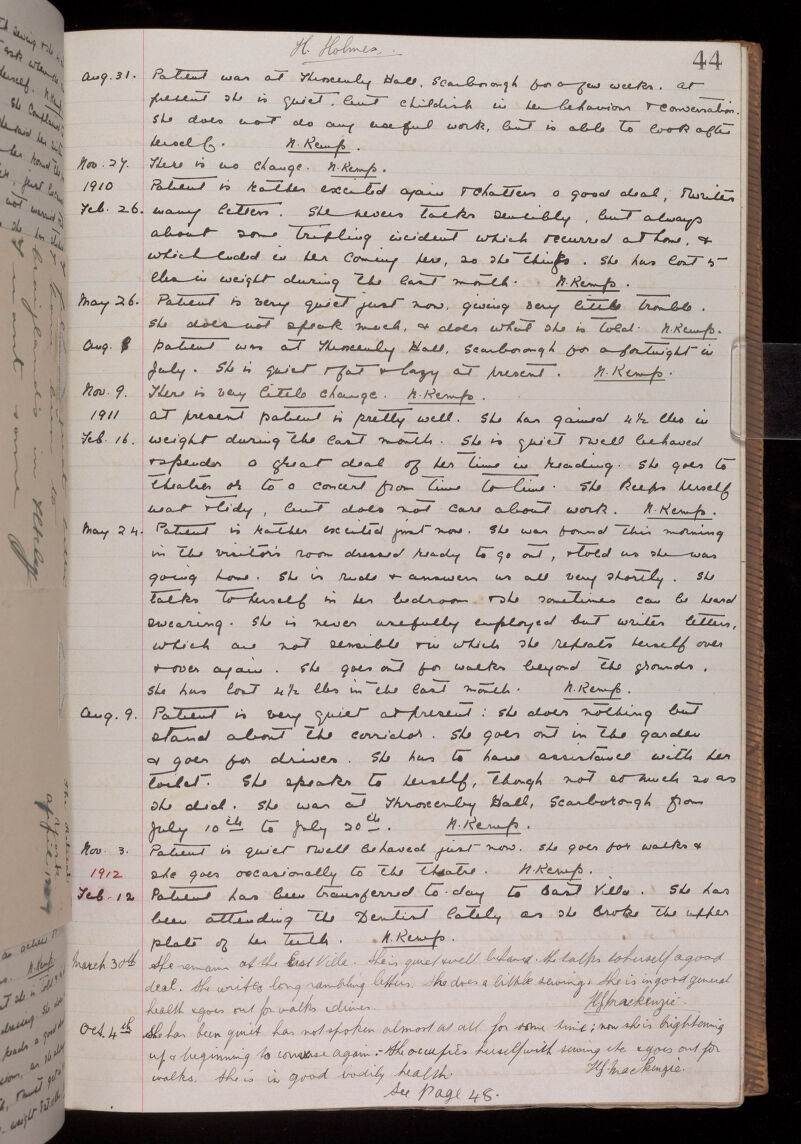 H. Holmes.
44
Aug. 31. Patient was at Throxenby Hall, Scarborough for a few weeks. At
present she is quiet, but childish in her behaviour & conversation.
She does not do any useful work, but is able to look after
herself. N. Kemp.
Nov. 27. There is no change. N. Kemp.
1910 Patient is rather excited again & chatters a good deal, & writes
Feb. 26. many letters. She never talks sensibly, but always
about some trifling incident which occurred at home, &
which ended in her coming here, so she thinks. She has lost 5
lbs in weight during the last month. N. Kemp.
May 26. Patient is very quiet just now, giving very little trouble.
She does not speak much, & does what she is told. N. Kemp.
Aug. 8 Patient was at Throxenby Hall, Scarborough for a fortnight in
July. She is quiet & fat & lazy at present. N. Kemp.
Nov. 9. There is very little change. N. Kemp.
1911 At present patient is pretty well. She has gained 4½ lbs in
Feb. 16. weight during the last month. She is quiet & well behaved
& spends a great deal of her time in reading. She goes to
theatres or to a concert from time to time. She keeps herself
neat & tidy, but does not care about work. N. Kemp.
May 24. Patient is rather excited just now. She was found this morning
in the visitor's room dressed ready to go out, & told us she was
going home. She is rude & answers us all very shortly. She
talks to herself in her bedroom & she sometimes can be heard
swearing. She is never usefully employed but writes letters,
which are not sensible & in which she repeats herself over
& over again. She goes out for walks beyond the grounds.
She has lost 4½ lbs in the last month. N. Kemp.
Aug. 9. Patient is very quiet at present: she does nothing but
stand about the corridor. She goes out in the garden
& goes for drives. She has to have assistance with her
toilet. She speaks to herself, though not so much so as
she did. She was at Throxenby Hall, Scarborough from
July 10th to July 20th. N. Kemp.
Nov. 3. Patient is quiet & well behaved just now. She goes for walks &
1912 she goes occasionally to the theatre. N. Kemp.
Feb. 12 Patient has been transferred to-day to East Villa. She has
been attending the Dentist lately as she broke the upper
plate of her teeth. N. Kemp.
March 30th She remains at the East Villa. She is quiet & well behaved. She talks to herself a good
deal. She writes long rambling letters. She does a little sewing & She is in good general
health & goes out for walks & drives. HJ Mackenzie.
Oct. 4th She has been quiet has not spoken almost at all for some time; now she is brightening
up & beginning to converse again. She occupies herself with sewing etc & goes out for
walks. She is in good bodily health. HJ Mackenzie.
See Page 48.